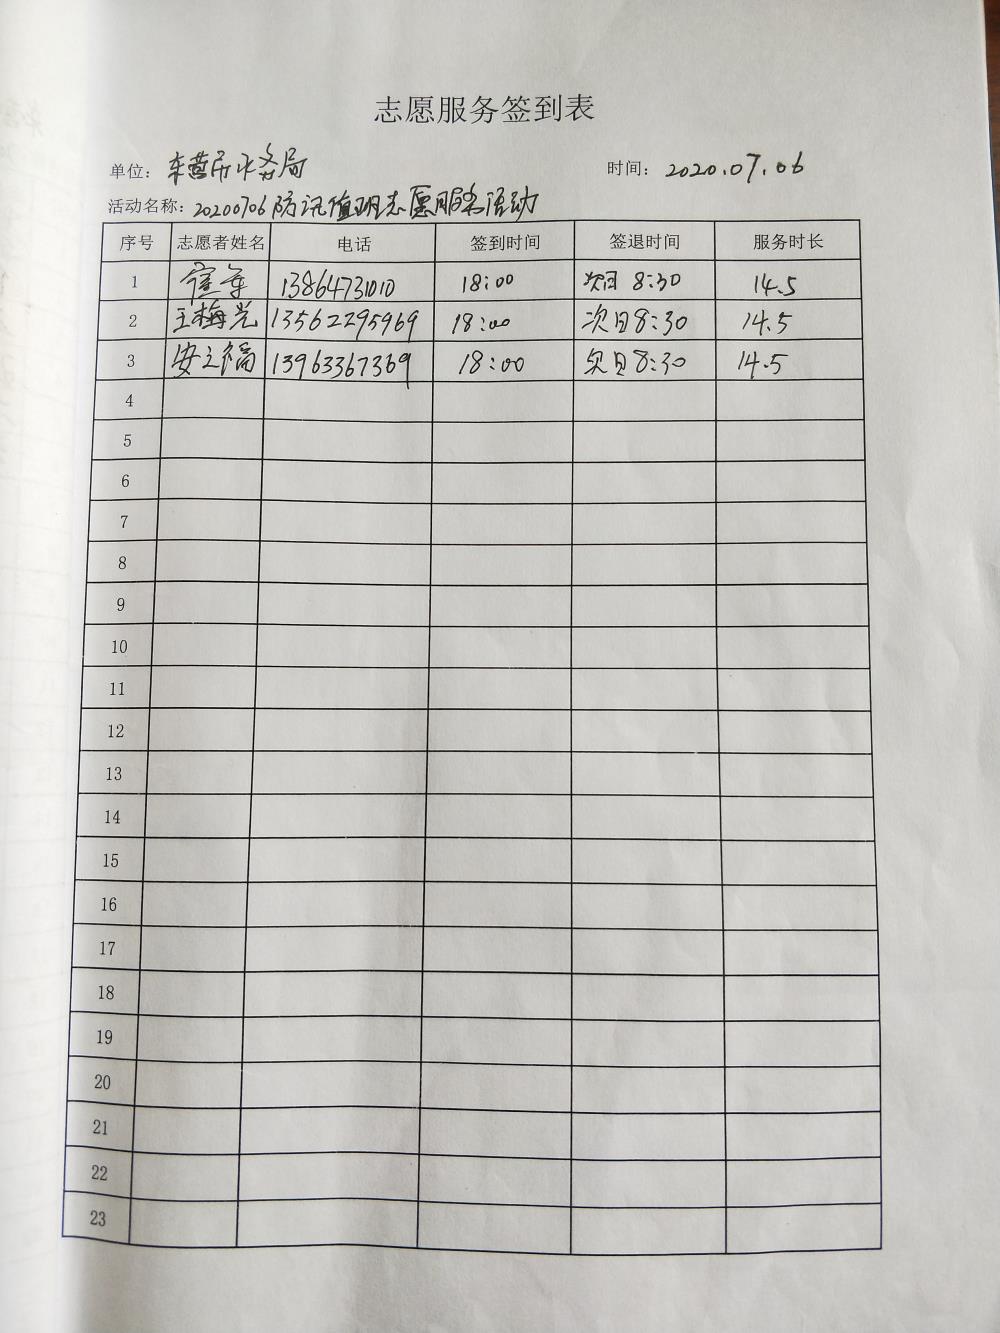 志愿服务签到表
单位: 东营市水务局 时间: 2020.07.06
活动名称: 20200706防汛值班志愿服务活动
序号 志愿者姓名 电话 签到时间 签退时间 服务时长
1 13864731010 18:00 次日 8:30 14.5
2 王梅光 13562295969 18:00 次日8:30 14.5
3 安立镉 13963367369 18:00 次日8:30 14.5
4
5
6
7
8
9
10
11
12
13
14
15
16
17
18
19
20
21
22
23